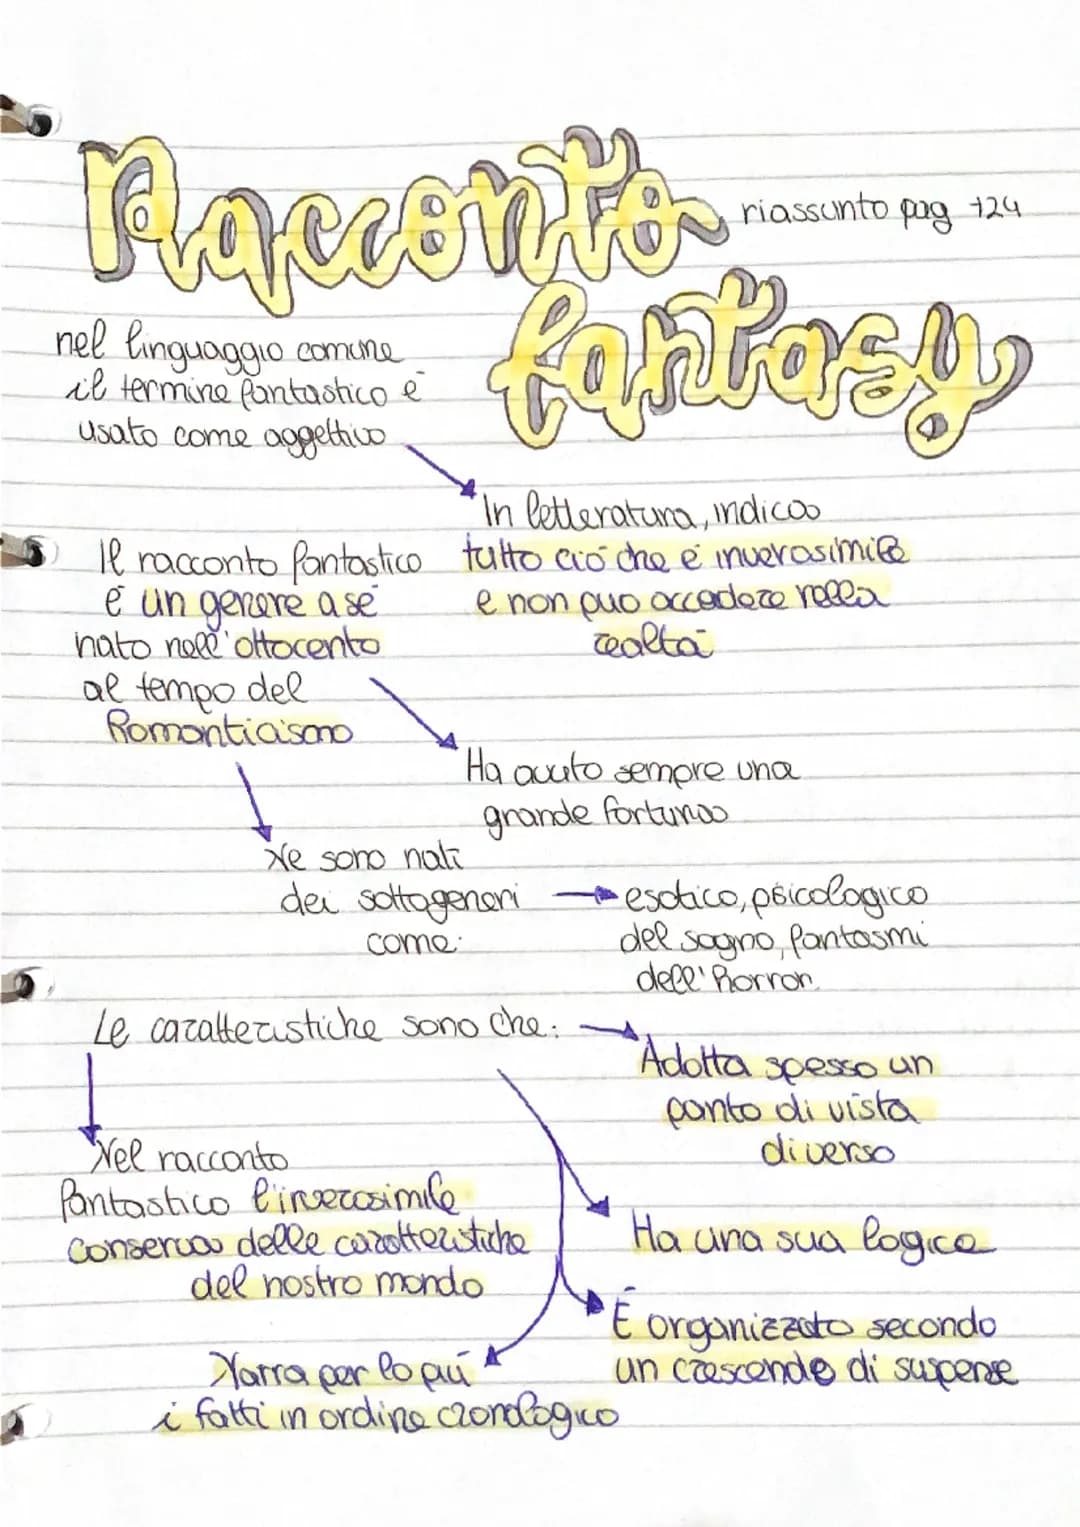 Racconto
riassunto pag 124
fantasy
nel linguaggio comune
il termine fantastico è
usato come aggettivo
In letteratura, indica
tutto ciò che è inverosimile
e non può accadere nella
realtà
Il racconto fantastico
è un genere a sé
nato nell'ottocento
al tempo del
Romanticismo
Ha avuto sempre una
grande fortuna
Ne sono nati
dei sottogeneri
come:
esotico, psicologico
del sogno, fantasmi
dell'horror
Le caratteristiche sono che:
Adotta spesso un
punto di vista
diverso
Nel racconto
fantastico l'inverosimile
conserva delle caratteristiche
del nostro mondo
Ha una sua logica
È organizzato secondo
un crescendo di supense
Narra per lo più
i fatti in ordine cronologico